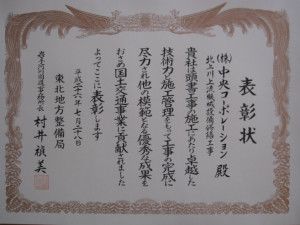 表彰状
(株)中央コーポレーション 殿
北上川上流機械設備修繕工事
貴社は頭書工事の施工にあたり卓越した
技術力と施工管理をもって工事の完成に
尽力され他の模範となる優秀な成果を
おさめ国土交通事業に貢献されました
よってここに表彰します
平成二十六年七月二十八日
東北地方整備局
岩手河川国道事務所長 村井禎美